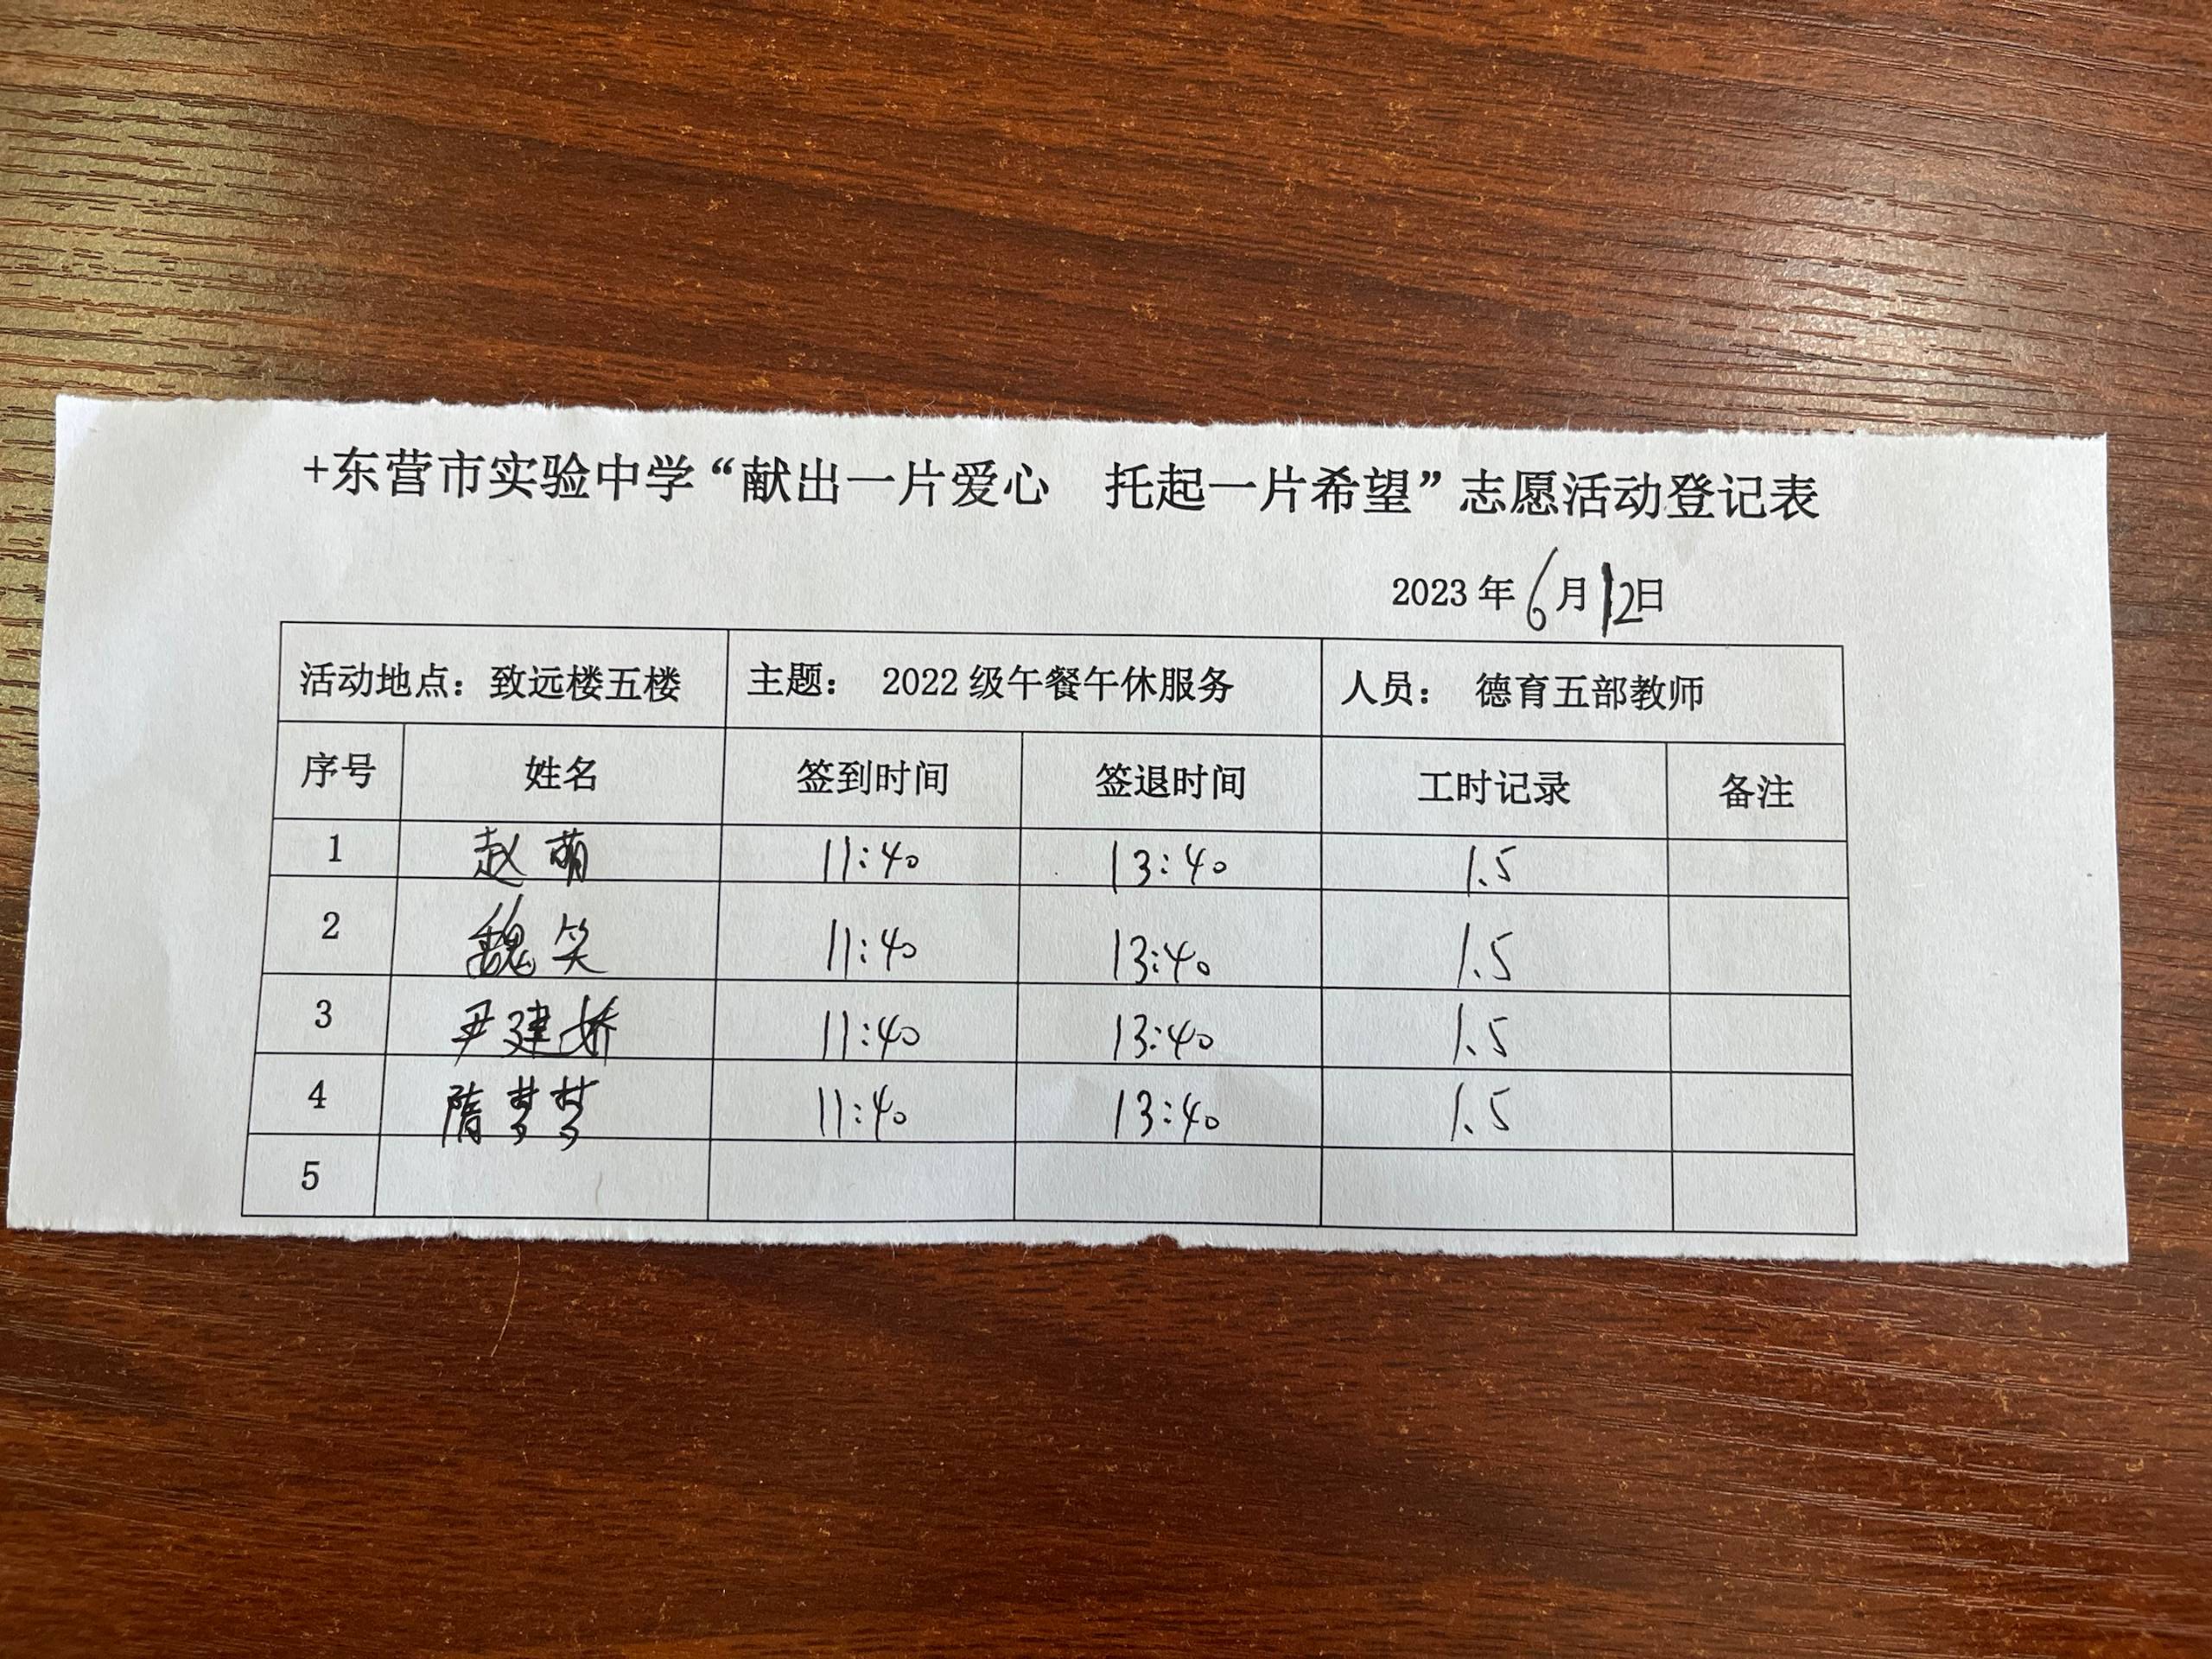 +东营市实验中学“献出一片爱心 托起一片希望”志愿活动登记表
2023年6月12日
活动地点：致远楼五楼 主题： 2022级午餐午休服务 人员： 德育五部教师
序号 姓名 签到时间 签退时间 工时记录 备注
1 赵萌 11:40 13:40 1.5
2 魏笑 11:40 13:40 1.5
3 尹建娇 11:40 13:40 1.5
4 隋梦梦 11:40 13:40 1.5
5